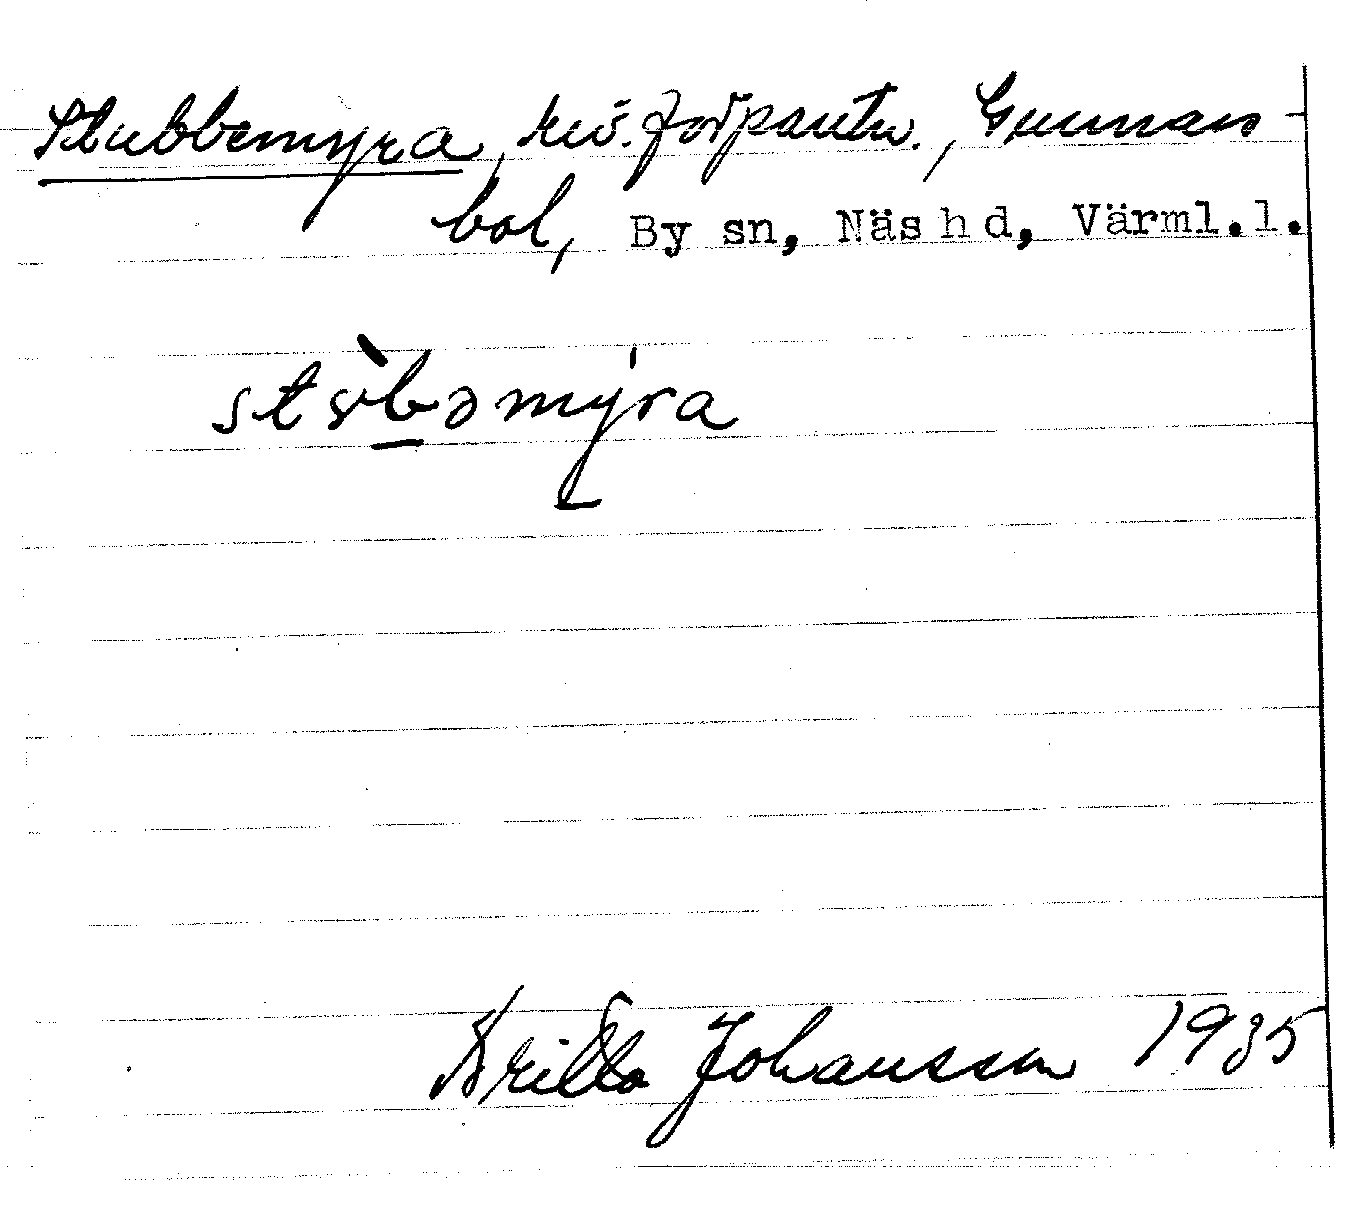 Stubbemyra, niv. fodpantn., Gunnars-
bol, By sn, Näs hd, Värml.l.
stɤ̀bəmýra
Britta Johansson 1935